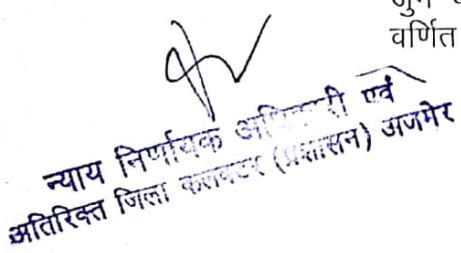 वर्णित
न्याय निर्णायक अधिकारी एवं
अतिरिक्त जिला कलक्टर (प्रशासन) अजमेर